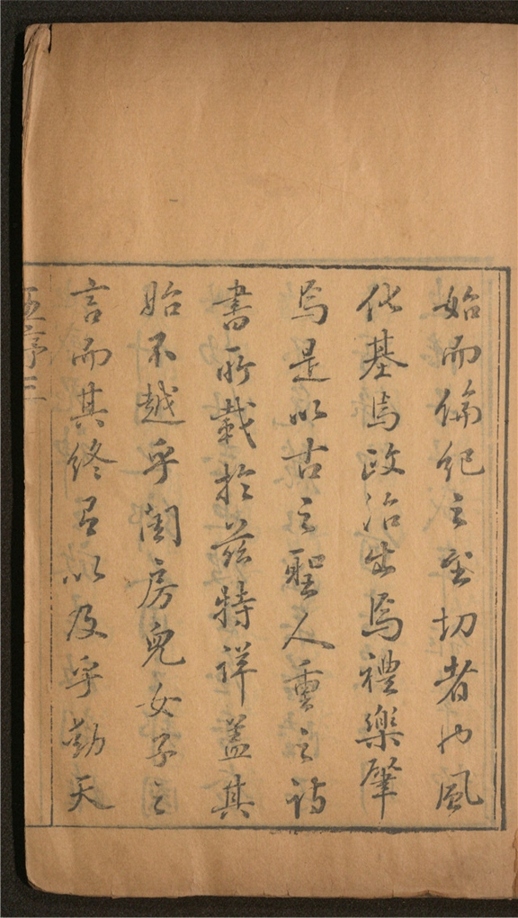 始而倫紀之至切者也風
化基焉政治出焉禮樂肇
焉是以古之聖人重之詩
書所載於茲特詳蓋其
始不越乎閨房兒女子之
言而其終有以及乎動天
序三